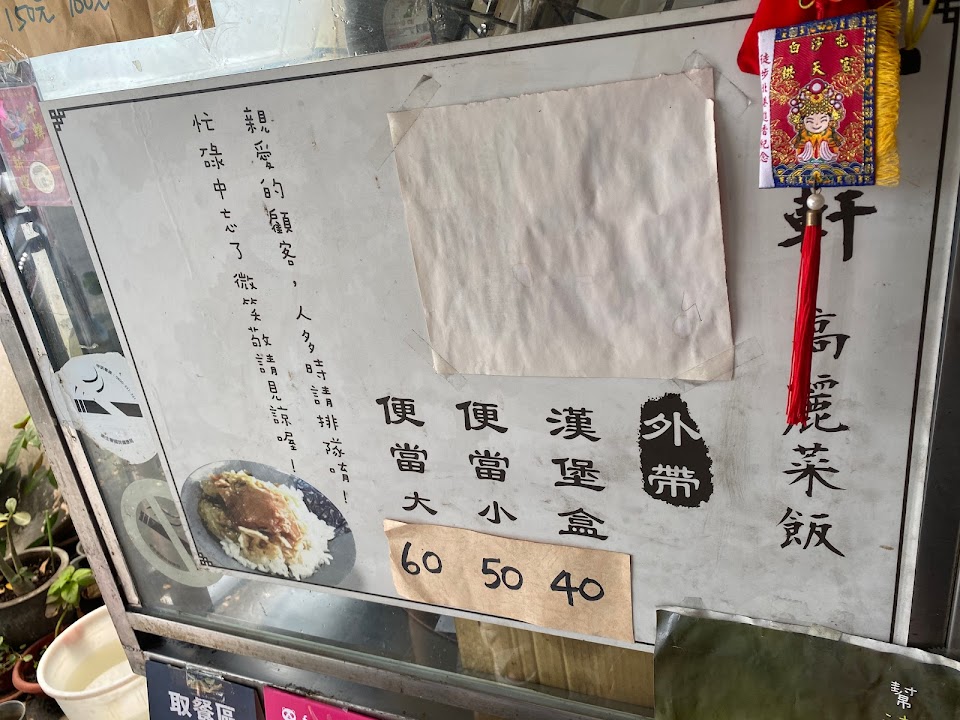 150元 100元
白沙屯
拱天宮
軒 高麗菜飯
外帶
漢堡盒 40
便當小 50
便當大 60
親愛的顧客，人多時請排隊唷！
忙碌中忘了微笑敬請見諒喔！
取餐區
幫